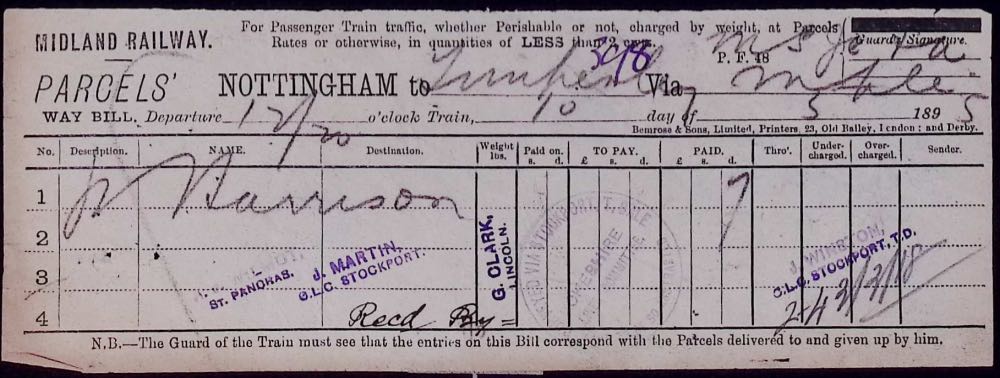 MIDLAND RAILWAY.
For Passenger Train traffic, whether Perishable or not, charged by weight, at Parcels
Rates or otherwise, in quantities of LESS than 2 cwts.
Guard's Signature.
P. F. 48
PARCELS' NOTTINGHAM to Via
WAY BILL. Departure 12/20 o'clock Train, 10 day of 5 1895
Bemrose & Sons, Limited, Printers, 23, Old Bailey, London; and Derby.
No. Description. NAME. Destination. Weight lbs. Paid on. s. d. TO PAY. £ s. d. PAID. £ s. d. Thro'. Under-charged. Over-charged. Sender.
1 Harrison 7
2
3
4 Recd By =
ST. PANCRAS.
J. MARTIN,
C.L.C. STOCKPORT.
G. CLARK,
LINCOLN.
C.L.C. STOCKPORT, T.D.
N.B.—The Guard of the Train must see that the entries on this Bill correspond with the Parcels delivered to and given up by him.